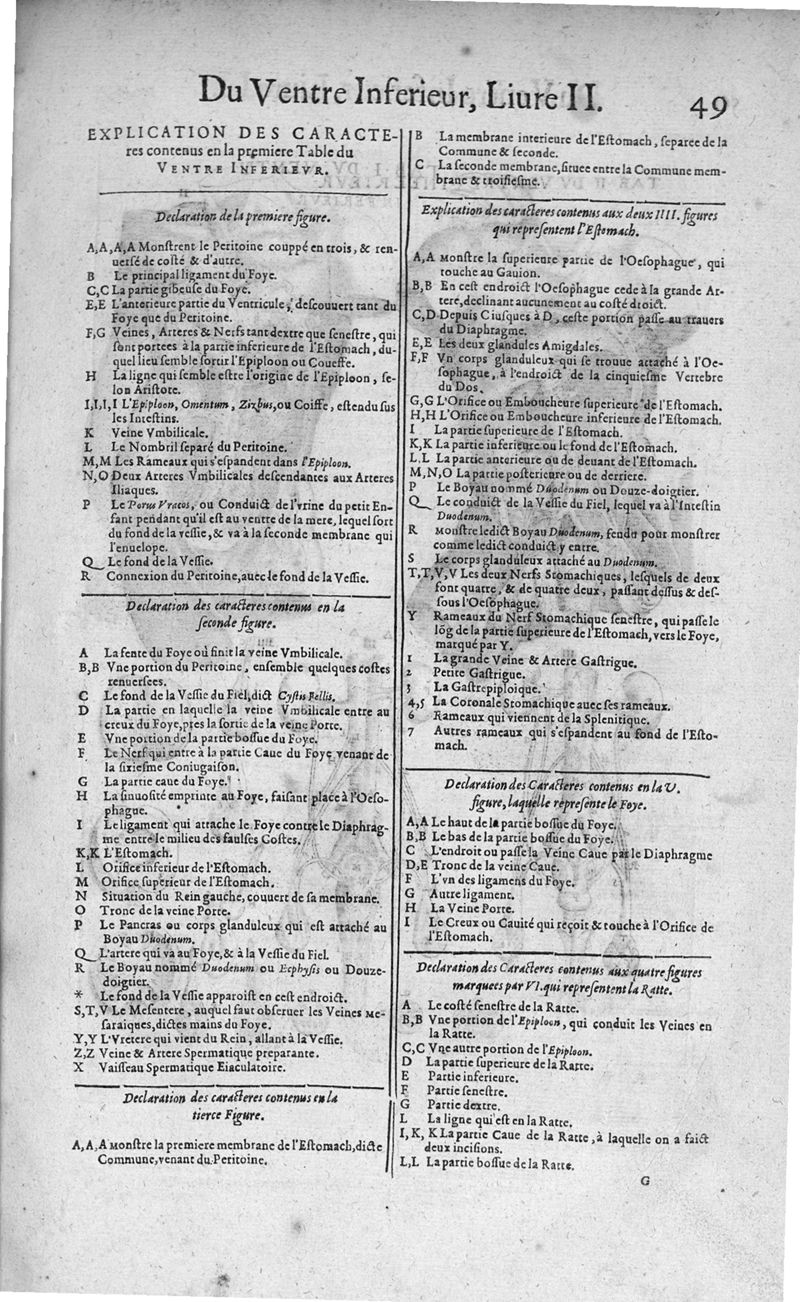 Du Ventre Inferieur, Liure II. 49
EXPLICATION DES CARACTE-
res contenus en la premiere Table du
VENTRE INFERIEVR.
Declaration de la premiere figure.
A,A,A,A Monſtrent le Peritoine couppé en trois, & ren-
uerſé de coſté & d'autre.
B Le principal ligament du Foye.
C,C La partie gibeuse du Foye.
E,E L'anterieure partie du Ventricule, deſcouuert tant du
Foye que du Peritoine.
F,G Veines, Arteres & Nerfs tant dextre que ſeneſtre, qui
ſont portees à la partie inferieure de l'Eſtomach, du-
quel lieu ſemble ſortir l'Epiploon ou Coueffe.
H La ligne qui ſemble eſtre l'origine de l'Epiploon, ſe-
lon Ariſtote.
I,I,I,I L'Epiploon, Omentum, Zirbus, ou Coiffe, eſtendu ſus
les Inteſtins.
K Veine Vmbilicale.
L Le Nombril ſeparé du Peritoine.
M,M Les Rameaux qui s'eſpandent dans l'Epiploon.
N,O Deux Arteres Vmbilicales deſcendantes aux Arteres
Iliaques.
P Le Porus Vracos, ou Conduict de l'vrine du petit En-
fant pendant qu'il eſt au ventre de la mere, lequel ſort
du fond de la veſſie, & va à la ſeconde membrane qui
l'enuelope.
Q Le fond de la Veſſie.
R Connexion du Peritoine, auec le fond de la Veſſie.
Declaration des caracteres contenus en la
ſeconde figure.
A La fente du Foye où finit la veine Vmbilicale.
B,B Vne portion du Peritoine, enſemble quelques coſtes
renuerſees.
C Le fond de la Veſſie du Fiel, dict Cyſtis Fellis.
D La partie en laquelle la veine Vmbilicale entre au
creux du Foye, pres la ſortie de la veine Porte.
E Vne portion de la partie boſſue du Foye.
F Le Nerf qui entre à la partie Caue du Foye, venant de
la ſixieſme Coniugaiſon.
G La partie caue du Foye.
H La ſinuoſité emptinte au Foye, faiſant place à l'Oeſo-
phague.
I Le ligament qui attache le Foye contre le Diaphrag-
me entre le milieu des faulſes Coſtes.
K,K L'Eſtomach.
L Orifice inferieur de l'Eſtomach.
M Orifice ſuperieur de l'Eſtomach.
N Situation du Rein gauche, couuert de ſa membrane.
O Tronc de la veine Porte.
P Le Pancras ou corps glanduleux qui eſt attaché au
Boyau Duodenum.
Q L'artere qui va au Foye, & à la Veſſie du Fiel.
R Le Boyau nommé Duodenum ou Ecphyſis ou Douze-
doigtier.
* Le fond de la Veſſie apparoiſt en ceſt endroict.
S,T,V Le Meſentere, auquel faut obſeruer les Veines Me-
ſaraiques, dictes mains du Foye.
Y,Y L'Vretere qui vient du Rein, allant à la Veſſie.
Z,Z Veine & Artere Spermatique preparante.
X Vaiſſeau Spermatique Eiaculatoire.
Declaration des caracteres contenus en la
tierce Figure.
A,A,A Monſtre la premiere membrane de l'Eſtomach, dicte
Commune, venant du Peritoine.
B La membrane interieure de l'Eſtomach, ſeparee de la
Commune & ſeconde.
C La ſeconde membrane, ſituee entre la Commune mem-
brane & troiſieſme.
Explication des caracteres contenus aux deux IIII. figures
qui repreſentent l'Eſtomach.
A,A Monſtre la ſuperieure partie de l'Oeſophague, qui
touche au Gauion.
B,B En ceſt endroict l'Oeſophague cede à la grande Ar-
tere, declinant aucunement au coſté droict.
C,D Depuis C iuſques à D, ceſte portion paſſe au trauers
du Diaphragme.
E,E Les deux glandules Amigdales.
F,F Vn corps glanduleux qui ſe trouue attaché à l'Oe-
ſophague, à l'endroict de la cinquieſme Vertebre
du Dos.
G,G L'Orifice ou Emboucheure ſuperieure de l'Eſtomach.
H,H L'Orifice ou Emboucheure inferieure de l'Eſtomach.
I La partie ſuperieure de l'Eſtomach.
K,K La partie inferieure ou le fond de l'Eſtomach.
L,L La partie anterieure ou de deuant de l'Eſtomach.
M,N,O La partie poſterieure ou de derriere.
P Le Boyau nommé Duodenum ou Douze-doigtier.
Q Le conduict de la Veſſie du Fiel, lequel va à l'Inteſtin
Duodenum.
R Monſtre ledict Boyau Duodenum, fendu pour monſtrer
comme ledict conduict y entre.
S Le corps glanduleux attaché au Duodenum.
T,T,V,V Les deux Nerfs Stomachiques, leſquels de deux
font quatre, & de quatre deux, paſſant deſſus & deſ-
ſous l'Oeſophague.
Y Rameaux du Nerf Stomachique ſeneſtre, qui paſſe le
lõg de la partie ſuperieure de l'Eſtomach, vers le Foye,
marqué par Y.
1 La grande Veine & Artere Gaſtrique.
2 Petite Gaſtrique.
3 La Gaſtrepiploique.
4,5 La Coronale Stomachique auec ſes rameaux.
6 Rameaux qui viennent de la Splenitique.
7 Autres rameaux qui s'eſpandent au fond de l'Eſto-
mach.
Declaration des Caracteres contenus en la V.
figure, laquelle repreſente le Foye.
A,A Le haut de la partie boſſue du Foye.
B,B Le bas de la partie boſſue du Foye.
C L'endroit ou paſſe la Veine Caue par le Diaphragme
D,E Tronc de la veine Caue.
F L'vn des ligamens du Foye.
G Autre ligament.
H La Veine Porte.
I Le Creux ou Cauité qui reçoit & touche à l'Orifice de
l'Eſtomach.
Declaration des Caracteres contenus aux quatre figures
marquees par VI. qui repreſentent la Ratte.
A Le coſté ſeneſtre de la Ratte.
B,B Vne portion de l'Epiploon, qui conduit les Veines en
la Ratte.
C,C Vne autre portion de l'Epiploon.
D La partie ſuperieure de la Ratte.
E Partie inferieure.
F Partie ſeneſtre.
G Partie dextre.
L La ligne qui eſt en la Ratte.
I,K,K La partie Caue de la Ratte, à laquelle on a faict
deux inciſions.
L,L La partie boſſue de la Ratte.
G